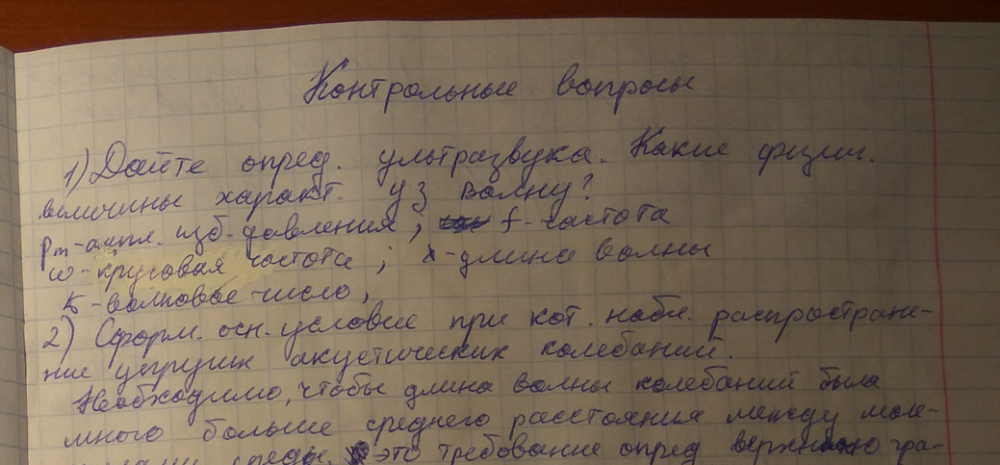 Контрольные вопросы
1) Дайте опред. ультразвука. Какие физич.
величины характ. УЗ волну?
Pm-ампл. изб. давления; f-частота
ω-круговая частота; λ-длина волны
K-волновое число,
2) Сформ. осн. условие при кот. набл. распростране-
ние упругих акустических колебаний.
Необходимо, чтобы длина волны колебаний была
много больше среднего расстояния между моле-
среды. это требование опред верхнюю гра-